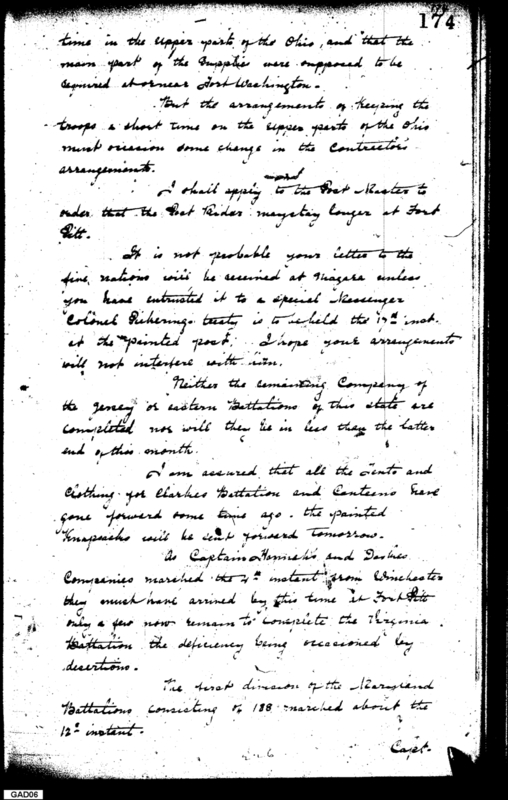 174
time in the upper parts of the Ohio, and that the
main part of the supplies were supposed to be
required at or near Fort Washington.
But the arrangements of keeping the
troops a short time on the upper parts of the Ohio
must occasion some change in the Contractors
arrangements.
I shall apply to the Post Master to
order that the Post Rider may stay longer at Fort
Pitt.
It is not probable your letter to the
five nations will be received at Niagara unless
you have entrusted it to a special Messenger
Colonel Pickerings treaty is to be held the 17th inst.
at the painted post. I hope your arrangements
will not interfere with him.
Neither the remaining Company of
the Jersey or eastern Battalions of this state are
completed nor will they be in less than the latter
end of this month.
I am assured that all the Tents and
Clothing for Clarkes Battalion and Canteens have
gone forward some time ago. the painted
Knapsacks will be sent forward tomorrow.
As Captain Hannahs and Darkes
Companies marched the 4th instant from Winchester
they must have arrived by this time at Fort Pitt
only a few now remain to complete the Virginia
Battalion the deficiency being occasioned by
desertions.
The first division of the Maryland
Battalions consisting of 188 marched about the
12th instant.
Capt.
GAD06